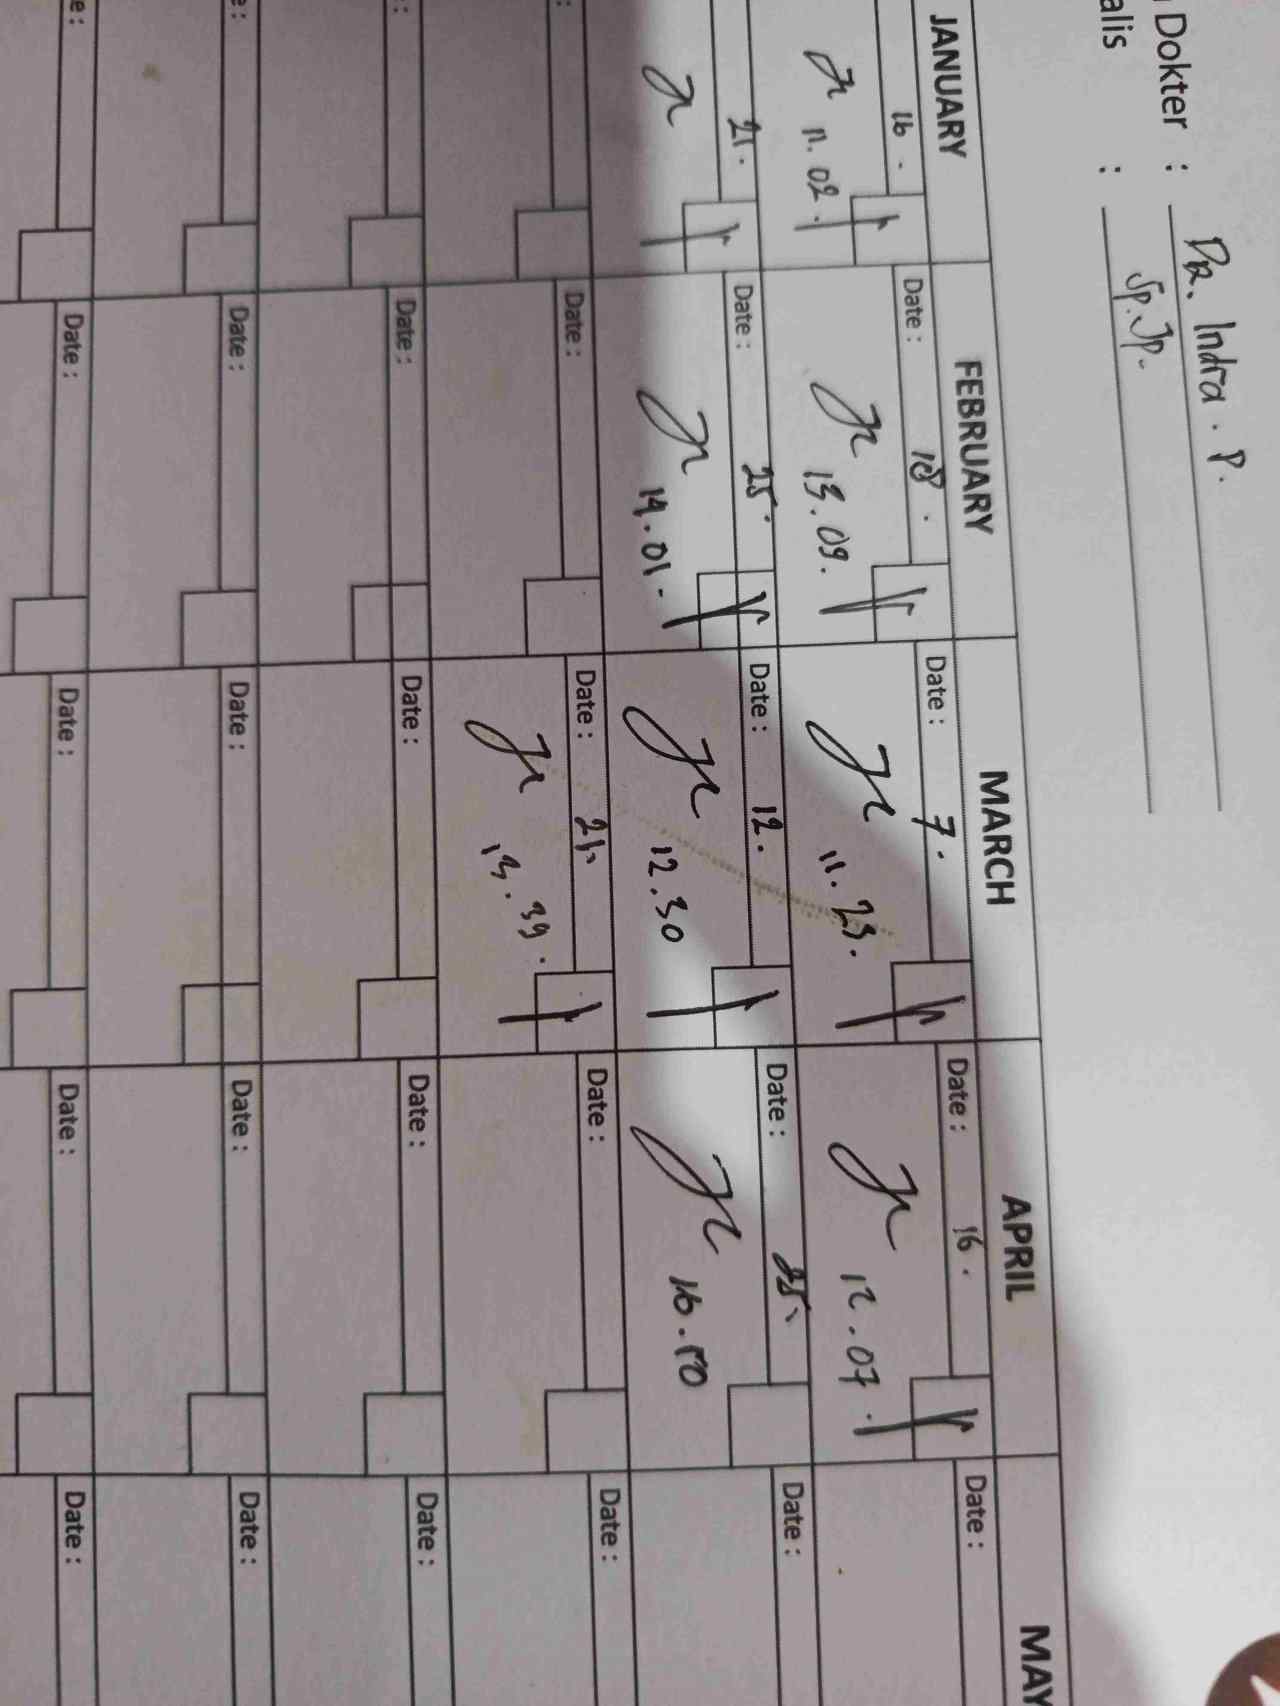 Dokter : DR. Indra . P.
alis : Sp.JP.
JANUARY FEBRUARY MARCH APRIL MAY
16 . Date : 18 . Date : 7 . Date : 16 . Date :
11.02 . 13.09. 11.23. 12.07 .
21 . Date : 25 . Date : 12 . Date : 25 Date :
14.01 . 12.30 16.50
: Date : Date : 21 Date : Date :
13.39 .
: Date : Date : Date : Date :
e : Date : Date : Date : Date :
e : Date : Date : Date : Date :